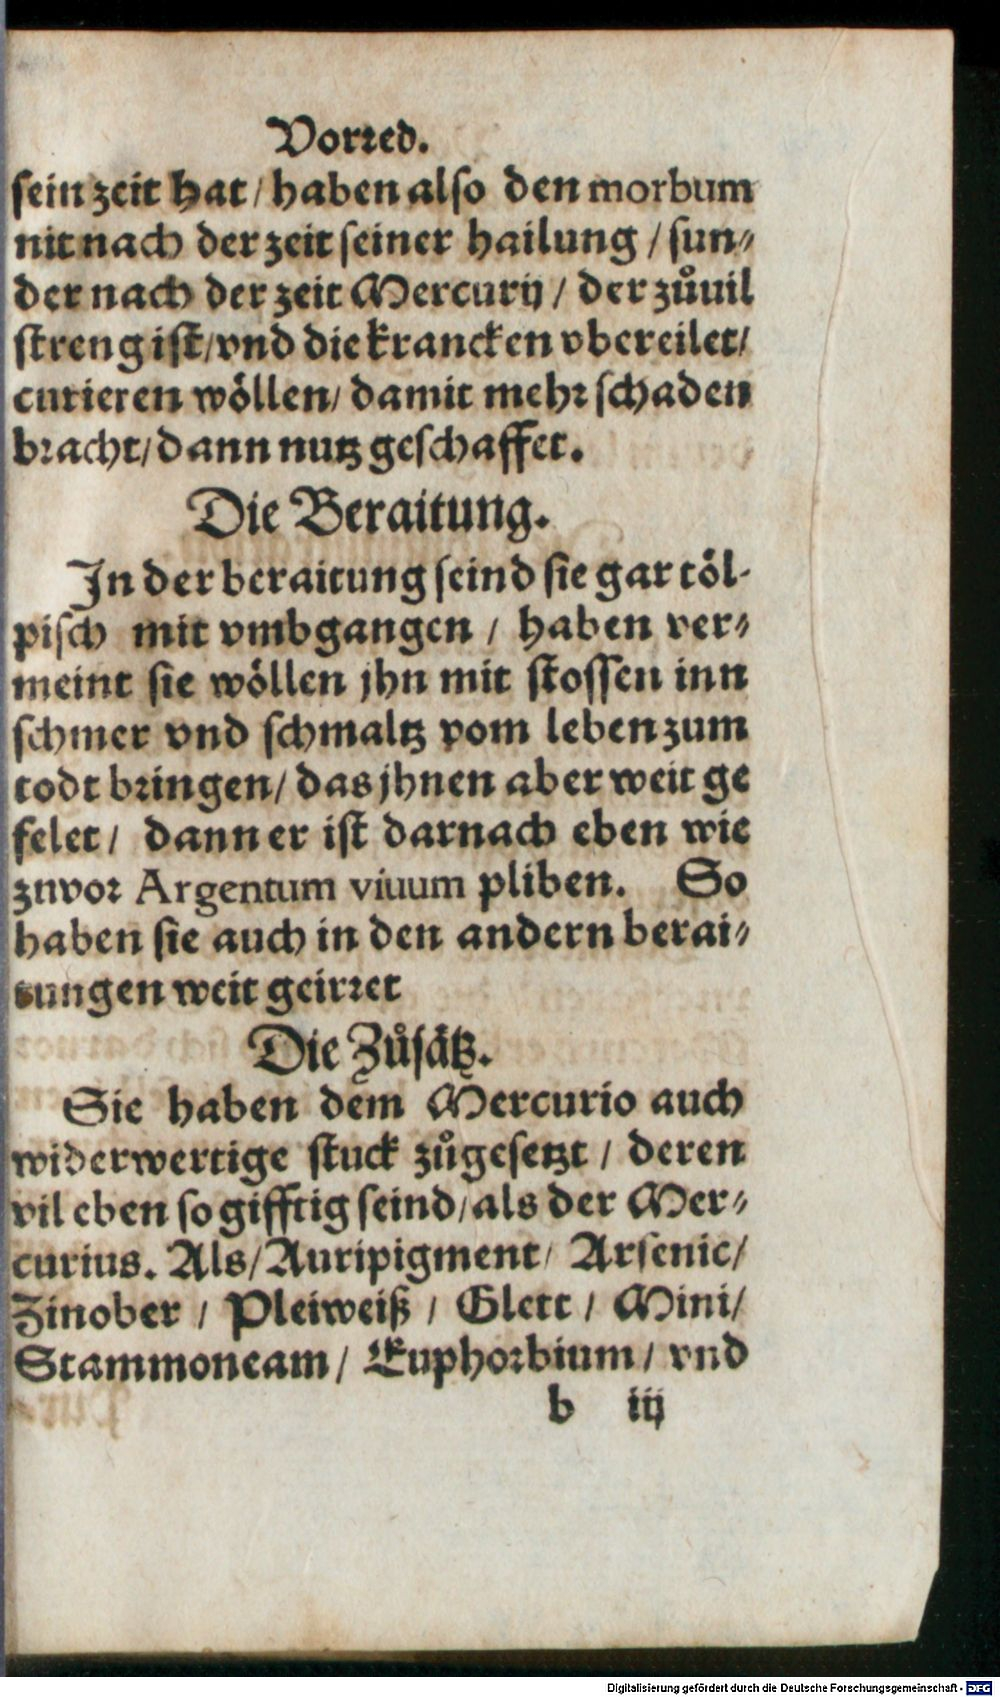 Vorred.
sein zeit hat / haben also den morbum
nit nach der zeit seiner hailung / sun⸗
der nach der zeit Mercurij / der zůuil
streng ist / vnd die krancken vbereilet /
curieren wöllen / damit mehr schaden
bracht / dann nutz geschaffet.
Die Beraitung.
In der beraitung seind sie gar töl-
pisch mit vmbgangen / haben ver⸗
meint sie wöllen jhn mit stossen inn
schmer vnd schmaltz vom leben zum
todt bringen / das jhnen aber weit ge
felet / dann er ist darnach eben wie
znvor Argentum viuum pliben. So
haben sie auch in den andern berai⸗
tungen weit geirret
Die Zůsätz.
Sie haben dem Mercurio auch
widerwertige stuck zůgesetzt / deren
vil eben so gifftig seind / als der Mer⸗
curius. Als / Auripigment / Arsenic /
Zinober / Pleiweiß / Glett / Mini /
Stammoneam / Euphorbium / vnd
b iij
Digitalisierung gefördert durch die Deutsche Forschungsgemeinschaft - DFG